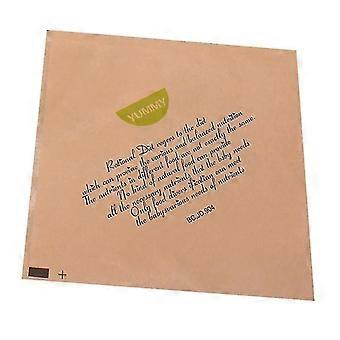 YUMMY
Rational Diet cayers to the diet
which can provine the various and balanced nutrition
The nutrients in different food are not exactly the same.
No kind of natural food can provide
all the necessary nutrients that the baby needs
Only food divers ification can meet
the babysvarious needs of nutrients
BC.JD.904